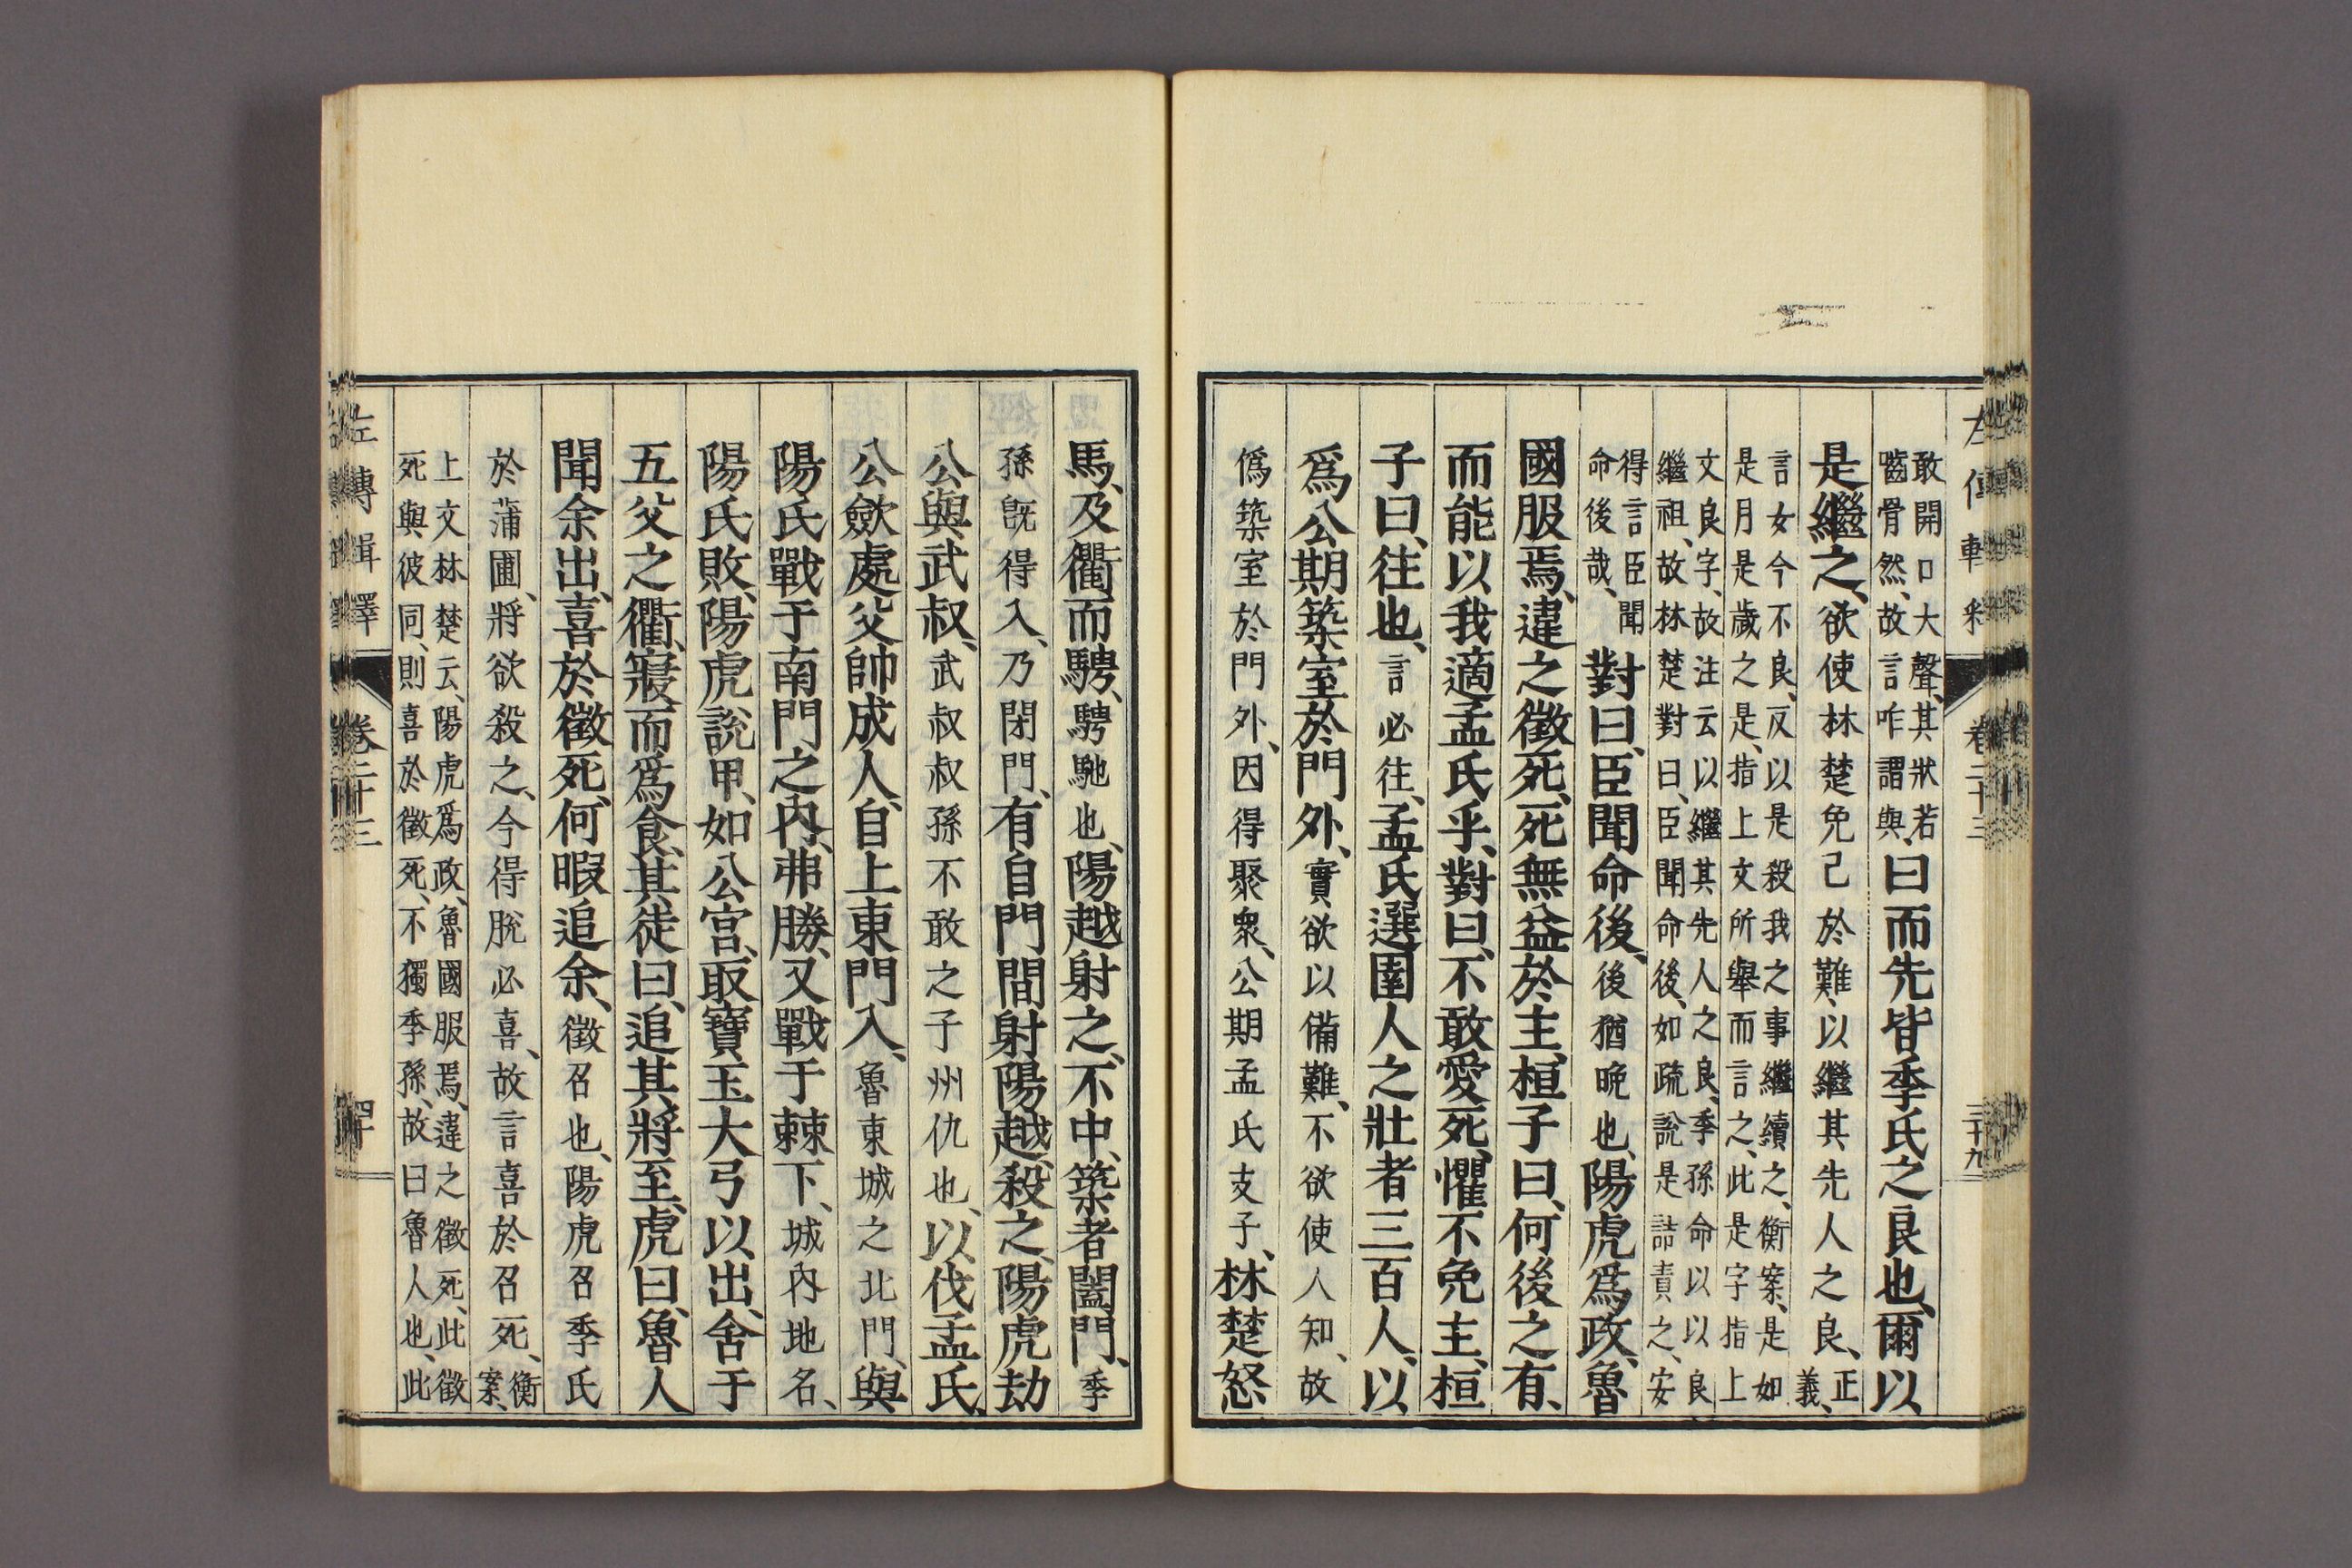 敢開口大聲、其狀若
嚙骨然、故言咋謂與、曰而先皆季氏之良也、爾以
是繼之、欲使林楚免己於難、以繼其先人之良、正
義、
言女今不良、反以是殺我之事繼續之、衡案、是如
是月是歲之是、指上文所舉而言之、此是字指上
文良字、故注云以繼其先人之良、季孫命以以良
繼祖、故林楚對曰、臣聞命後、如疏說是詰責之、安
得言臣聞
命後哉、對曰、臣聞命後、後猶晚也、陽虎爲政、魯
國服焉、違之徵死、死無益於主、桓子曰、何後之有、
而能以我適孟氏乎、對曰、不敢愛死、懼不免主、桓
子曰、往也、言必往、孟氏選圉人之壯者三百人、以
爲公期築室於門外、實欲以備難、不欲使人知、故
僞築室於門外、因得聚衆、公期孟氏支子、林楚怒
卷二十三
三十九
馬、及衢而騁、騁馳也、陽越射之、不中、築者闔門、季
孫既得入、乃閉門、有自門間射陽越、殺之、陽虎劫
公與武叔、武叔叔孫不敢之子州仇也、以伐孟氏、
公斂處父帥成人、自上東門入、魯東城之北門、與
陽氏戰于南門之內、弗勝、又戰于棘下、城內地名、
陽氏敗、陽虎說甲、如公宮、取寶玉大弓以出、舍于
五父之衢、寢而爲食、其徒曰、追其將至、虎曰、魯人
聞余出、喜於徵死、何暇追余、徵召也、陽虎召季氏
於蒲圃、將欲殺之、今得脫必喜、故言喜於召死、衡
案、
上文林楚云、陽虎爲政、魯國服焉、違之徵死、此徵
死與彼同、則喜於徵死、不獨季孫、故曰魯人也、此
左傳輯釋
卷二十三
四十